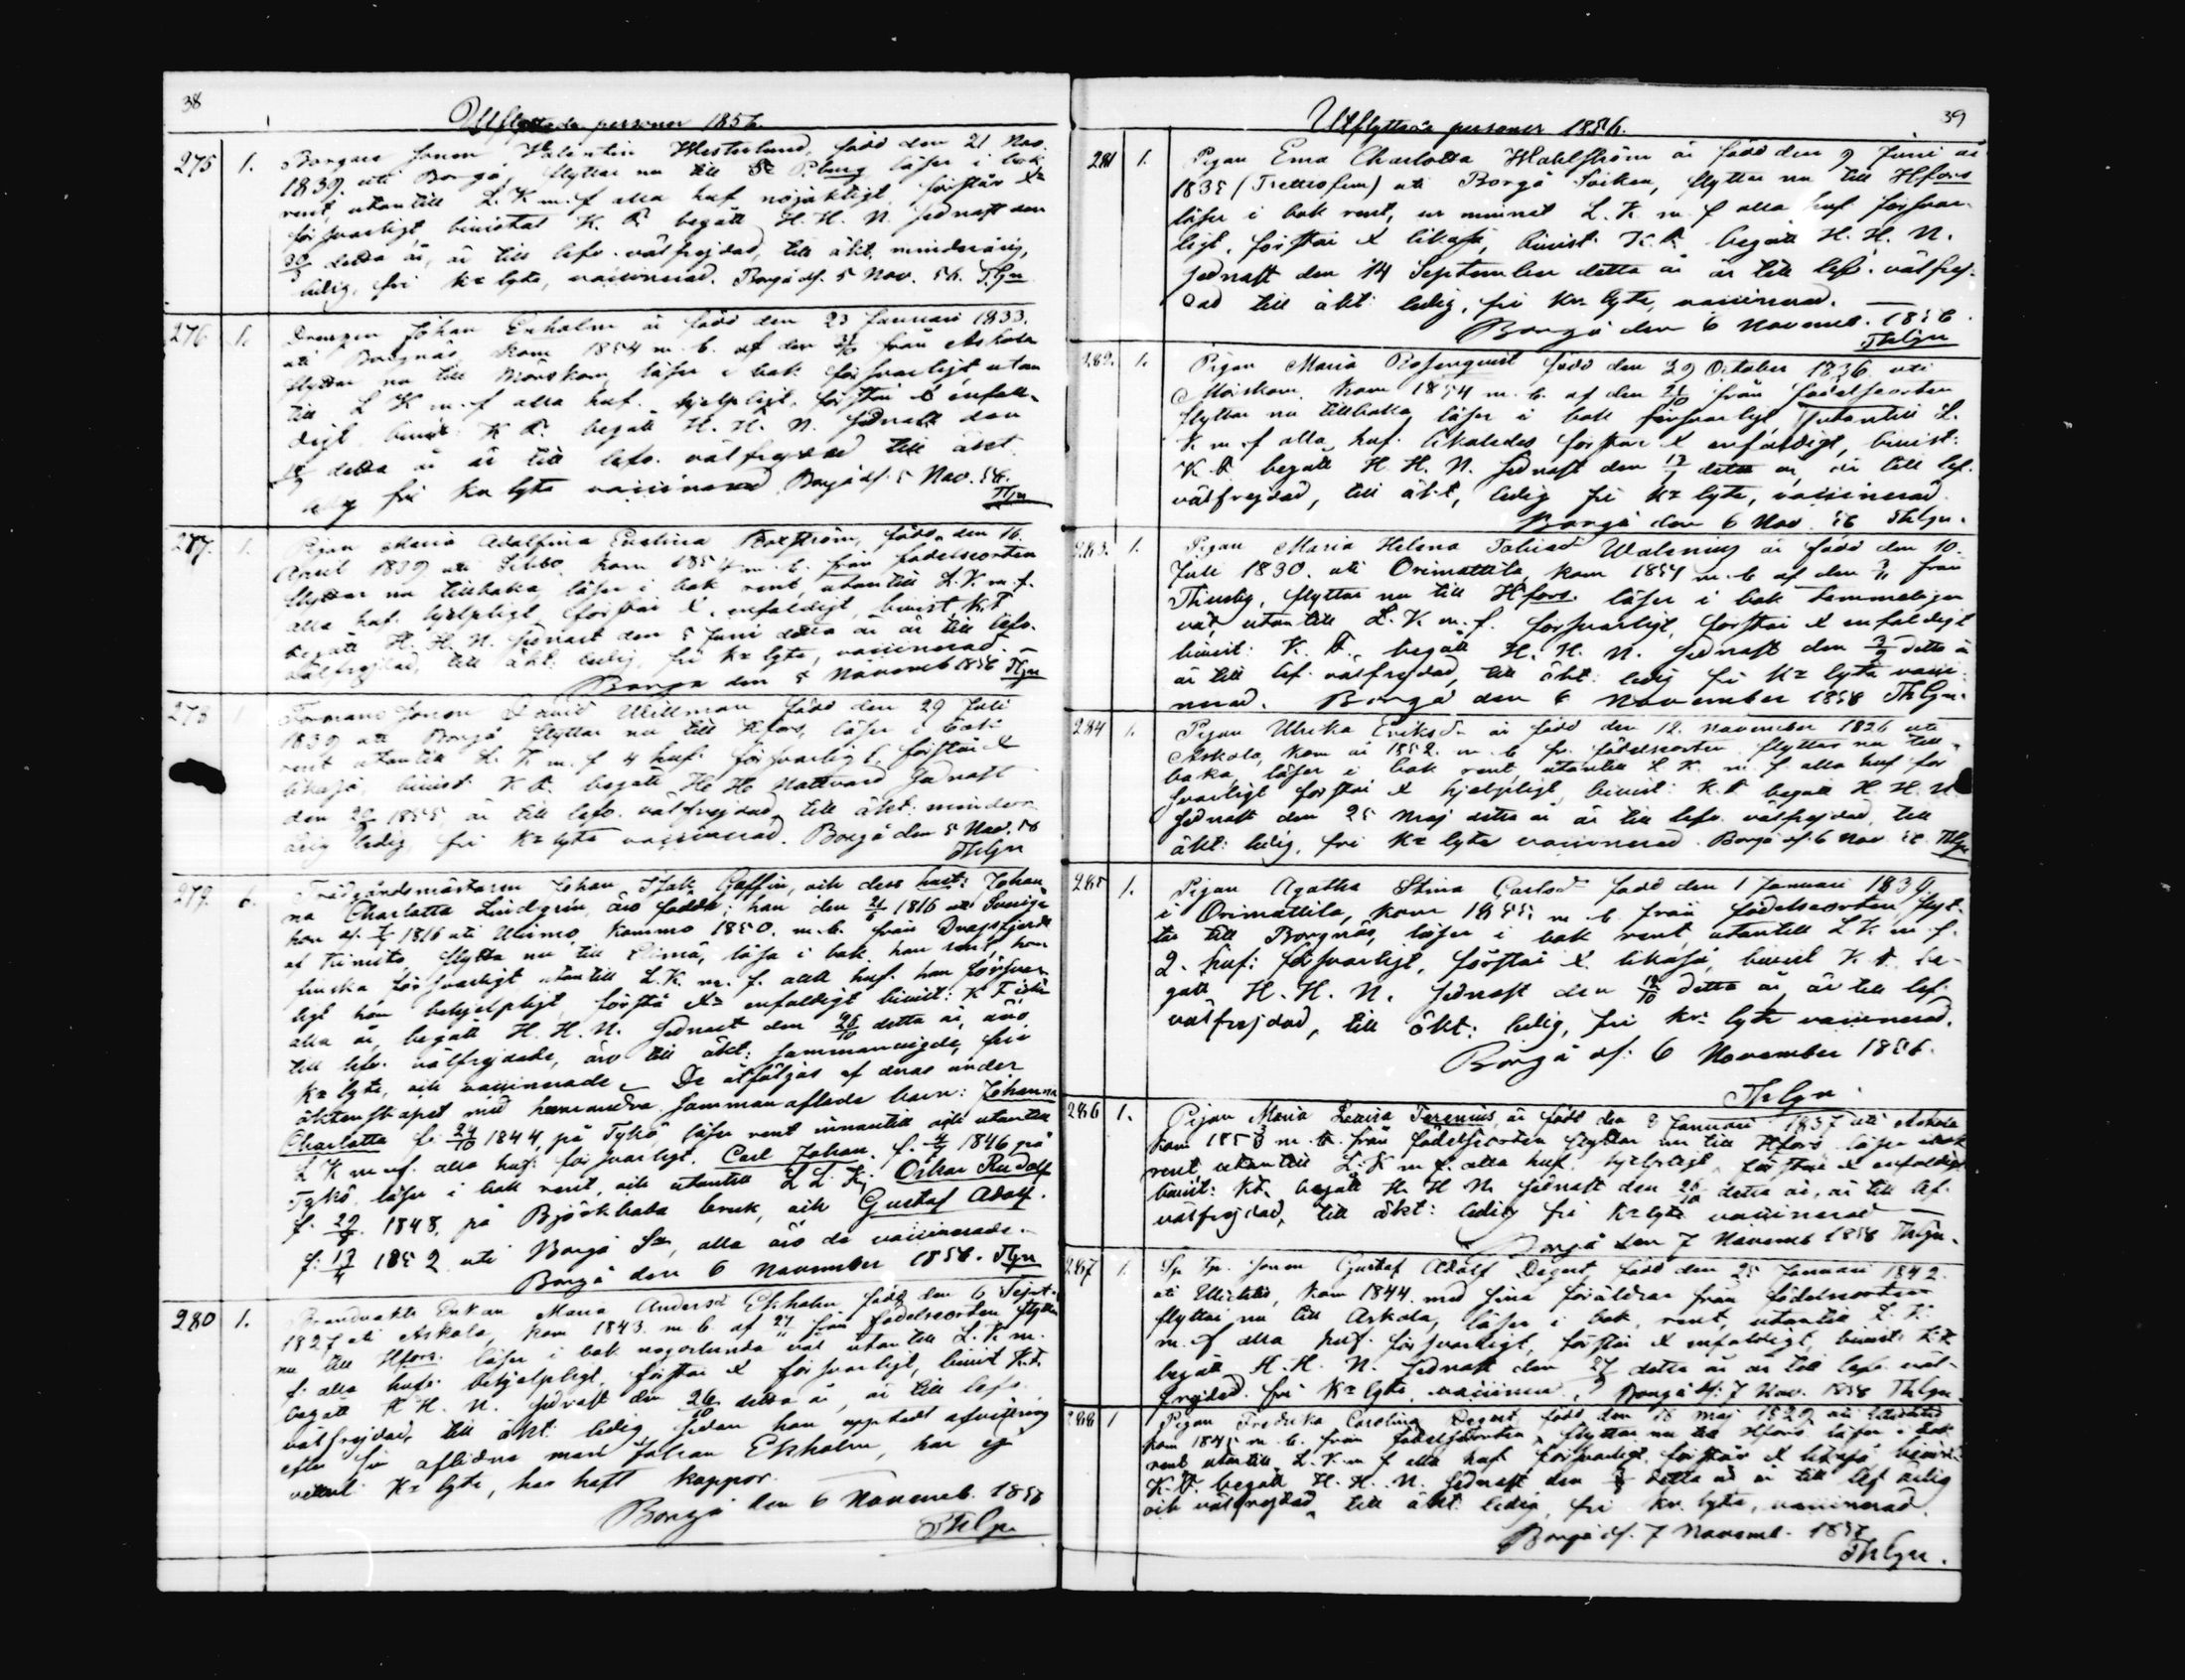 38
Utflyttade personer 1856.
275 1. Borgare Sonen Valentin Westerlund, född den 21 Nov.
1839. uti Borgå, flyttar nu till St P.burg läser i bok
rent, utantill L. K. m. f alla huf nöjaktigt, förstår X:
försvarligt bivistat K. F. begått H. H. N. sednast den
detta år, är till lefv. välfrejdad, till äkt. minderårig,
ledig, fri Kr lyte, vaccinerad. Borgå d. 5 Nov. 56. Thlgn
276. 1. Drengen Johan Enholm är född den 23 Januari 1833.
uti Borgnäs, kom 1854 m. b. af den från Askola
flyttar nu till Mörskom, läser i bok försvarligt, utan
till L K m. f alla huf. hjelpligt, förstår X enfal-
digt, bivist K F. begått H. H. N. sednast den
detta år är till lefv. välfrejdad till äkt.
ledig fri Kr lyte vaccinerad Borgå d. 5 Nov. 56.
Thlgn
277. 1. Pigan Maria Adolfina Evelina född den 16.
April 1839 uti Sibbo. kom 1854 m. b. från födelseorten
flyttar nu tillbaka, läser i bok rent, utantill L. K. m. f.
alla huf. hjelpligt, förstår X. enfaldigt, bivist. K. F
begått H. H. N. sednast den 8 Juni detta år är till lefv.
välfrejdad, till äkt: ledig, fri Kr lyte, vaccinerad.
Borgå den 5 Novemb 1856 Thlgn
278 1 Sonen David Willman född den 29 Juli
1839 uti Borgå flyttar nu till Hfors, läser i bok
rent utantill L. K. m. f 4 huf. försvarligt, förstår X
likaså, bivist K F. begått H. H. Nattvard sednast
den 1855, är till lefv. välfrejdad, till äkt. minder-
årig ledig, fri Kr lyte vaccinerad. Borgå den 5 Nov. 56
Thlgn
279. 6. Trädgårdsmästaren Johan Isak Gaffin, och dess hust: Johan-
na Charlotta Lindgren, äro födda: han den 21/6 1816 uti Sverige
hon d. 1816 uti Ulrimo, kommo 1850. m. b. från Dragsfjerd
af Kimito, flytta nu till Elimä, läsa i bok han rent, hon
försvarligt utantill L. K. m. f. alla huf. han försvar-
ligt hon behjelpligt, förstå X:= enfaldigt bivist: K F
alla år, begått H. H. N. sednast den 26/10 detta år, äro
till lefv. välfrejdade, äro till äkt: sammanvigde, fri
Kr lyte, och vaccinerade. De åtföljas af deras under
äktenskapet med hvarandra sammanaflade barn: Johanna
Charlotta f. 24/10 1844, på Tykö, läser rent innantill och utantill
L K m. f. alla huf: försvarligt. Carl Johan. f. 1846 på
Tykö, läser i bok rent, och utantill L L K; Oskar Rudolf
f. 1848, på Björkboda bruk, och Gustaf Adolf.
f: 17/4 1852 uti Borgå Sn, alla äro de vaccinerade.
Borgå den 6 November 1856. Thlgn
280 1. Brandvakts Enkan Maria Andersd Ekholm född den 6 Sept.
1827 uti Askola, kom 1843. m. b af 27/11 från födelseorten flyttar
nu till Hfors. läser i bok någorlunda väl utantill L. K. m.
f. alla huf: behjelpligt, förstår X försvarligt, bivist K. F.
begått H H. N. sednast den 26/10 detta år, är till lefv.
välfrejdad, till äkt ledig, sedan hon upptedt afvittring
efter sin aflidne man Johan Ekholm, har ej
Kr lyte, har haft koppor.
Borgå den 6 Novemb. 1856
Thlgn
39
Utflyttade personer 1856.
281 1. Pigan Erna Charlotta Wahlström är född den 9 Juni år
1835 (Trettiofem) uti Borgå Socken, flyttar nu till Hfors
läser i bok rent, ur minnet L. K. m. f alla huf försvar-
ligt, förstår X likaså, bivist: K. F. begått H. H. N.
sednast den 14 September detta år är till lef. välfrej-
dad till äkt: ledig, fri Kr lyte, vaccinerad.
Borgå den 6 Novemb. 1856.
Thlgn
282. 1. Pigan Maria Rosenquist född den 29 October 1836. uti
Mörskom. kom 1854 m. b. af den från födelseorten
flyttar nu tillbaka, läser i bok försvarligt utantill L.
K. m. f alla, huf. likaledes förstår X enfaldigt, bivist:
K. F. begått H. H. N. sednast den detta år, är till lef.
välfrejdad, till äkt, ledig fri Kr lyte, vaccinerad.
Borgå den 6 Nov. 56 Thlgn.
283. 1. Pigan Maria Helena Tobiasd Walenius är född den 10.
Juli 1830. uti Orimattila, kom 1854 m. b af den från
Thusby, flyttar nu till Hfors. läser i bok temmeligen
väl, utantill L. K. m. f. försvarligt, förstår X enfaldigt
bivist: K. F., begått H. H. N. sednast den detta år
är till lef. välfrejdad, till äkt: ledig fri Kr lyte vacci-
nerad. Borgå den 6 November 1856 Thlgn.
284 1. Pigan Ulrika Eriksd. är född den 12. November 1826 uti
Askola, kom år 1852. m. b fr. födelseorten flyttar nu till-
baka, läser i bok rent, utantill L K. m. f alla huf för
svarligt förstår X hjelpligt, bivist: K. F. begått H. H. N
sednast den 25 Maj detta år är till lefv. välfrejdad, till
äkt: ledig, fri Kr lyte vaccinerad. Borgå d. 6 Nov 56 Thlgn
285 1. Pigan Agatha Stina Carlsd född den 1 Januari 1839.
i Orimattila, kom 1855 m. b. från födelseorten flyt-
tar till Borgnäs, läser i bok rent, utantill L K m. f.
2. huf: försvarligt, förstår X. likaså, bivist K. F. be-
gått H. H. N. sednast den detta år, är till lef.
välfrejdad, till äkt: ledig, fri Kr: lyte vaccinerad.
Borgå d: 6 November 1856.
Thlgn
286 1. Pigan Maria Lovisa Terenius, är född den 8 Januari 1837 uti Askola
kom 1853 m. b. från födelseorten flyttar nu till Hfors läser i bok
rent utantill L. K m f. alla huf. hjelpligt, förstår X enfaldigt
bivist: K F. begått H. H N. sednast den 26/10 detta år, är till lef.
välfrejdad, till äkt: ledig fri Kr lyte vaccinerad
Borgå den 7 Novemb 1856 Thlgn.
287 1. Sonen Gustaf Adolf Degert, född den 25 Januari 1842.
uti kom 1844 med sina föräldrar från födelseorten
flyttar nu till Askola, läser i bok, rent, utantill L. K.
m. f alla huf. försvarligt, förstår X enfaldigt, bivist: K F
begått H. H. N. sednast den detta år är till lefv. väl-
frejdad. fri Kr lyte, vaccinerad. Borgå d: 7 Nov. 1856 Thlgn.
288 1 Pigan Fredrika Carolina Degert, född den 16 Maj 1829 uti
kom 1845 m. b. från födelseorten, flyttar nu till Hfors läser i bok
rent utantill, L. K. m f alla huf försvarligt, förstår X likaså, bivist:
K. F. begått H. H. N. sednast den detta år är till lef ärlig
och välfrejdad, till äkt: ledig, fri Kr. lyte, vaccinerad.
Borgå d. 7 Novemb. 1856
Thlgn.